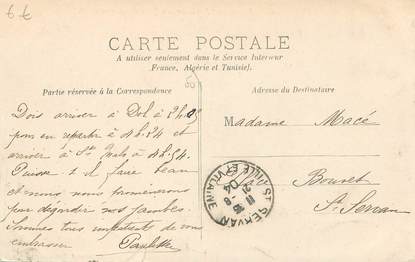 CARTE POSTALE
A utiliser seulement dans le Service Intérieur
(France, Algérie et Tunisie).
Partie réservée à la Correspondance
Adresse du Destinataire
Dois arriver à Dol à 2h.
pour en repartir à 4h.24 et
arriver à St Malo à 4h.54
Puisse-t-il faire beau
et nous nous promènerons
pour dégourdir nos jambes.
Sommes tous impatients de vous
embrasser
Paulette
Madame Macé
Bouvet
St Servan
ST SERVAN
ILLE ET VILAINE
04